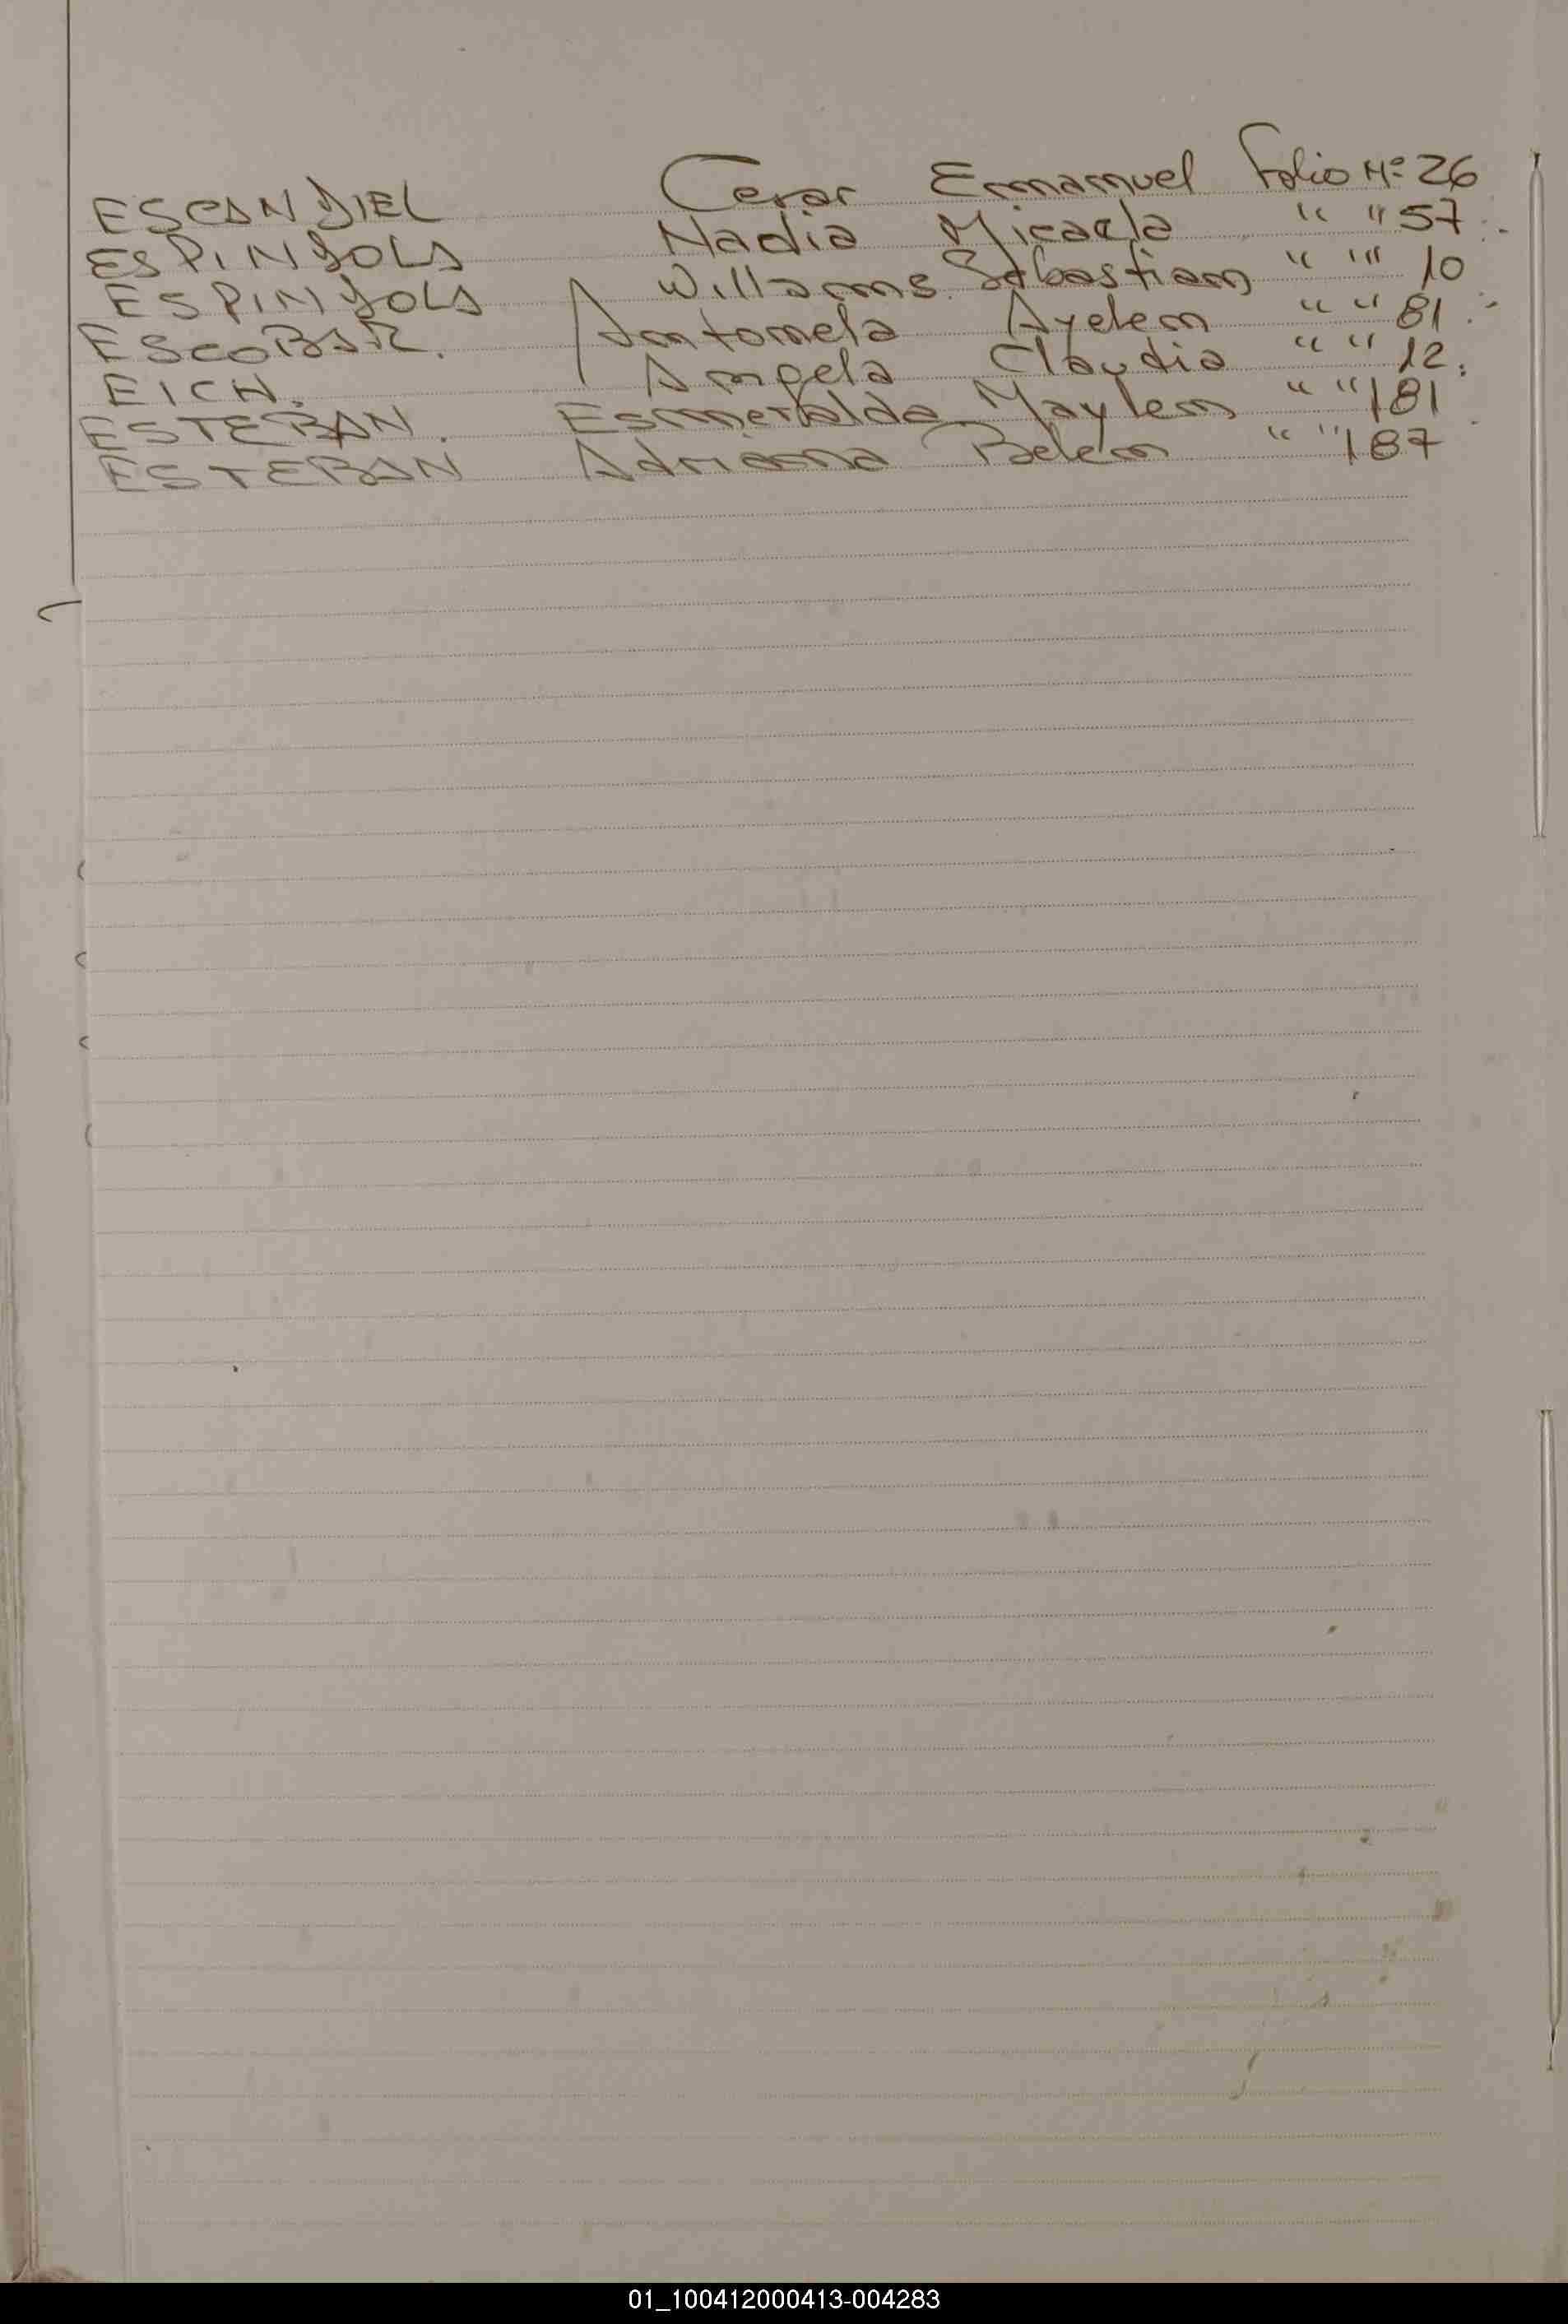 ESCANDIEL Cesar Emmanuel Folio Nº 26
ESPINDOLA Nadia Micaela " " 57
ESPINDOLA Willams Sebastian " " 10
ESCOBAR. Antonela Ayelen " " 81
EICH. Angela Claudia " " 12.
ESTEBAN. Esmeralda Maylen " " 181
ESTEBAN Adriana Belen " " 187
01_100412000413-004283